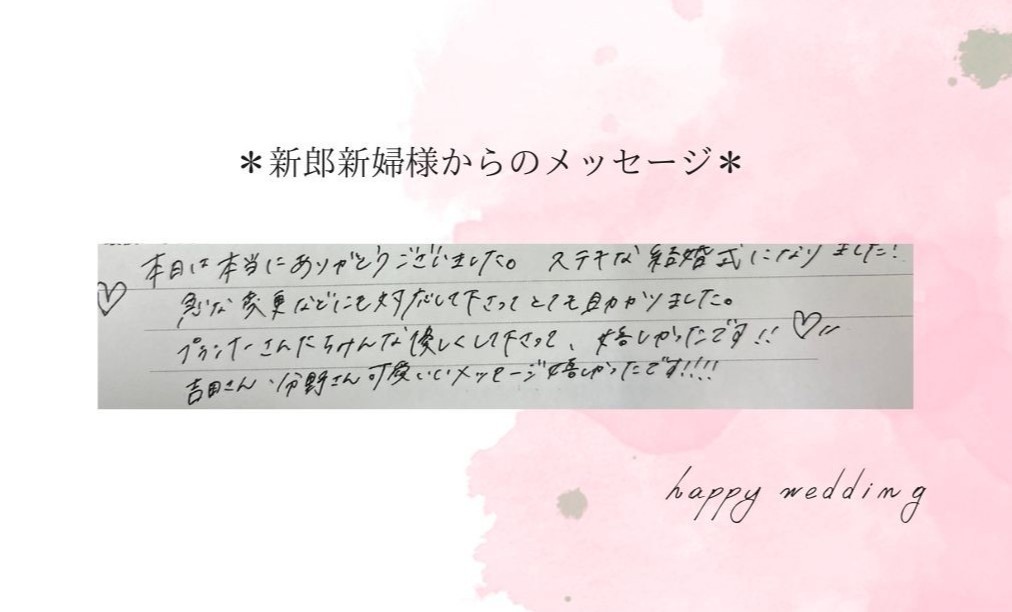 ＊新郎新婦様からのメッセージ＊
本日は本当にありがとうございました。ステキな結婚式になりました！
急な変更などにも対応して下さってとても助かりました。
プランナーさんたちみんな優しくして下さって、嬉しかったです!!
吉田さん、分野さん可愛いいメッセージ嬉しかったです!!!!
happy wedding